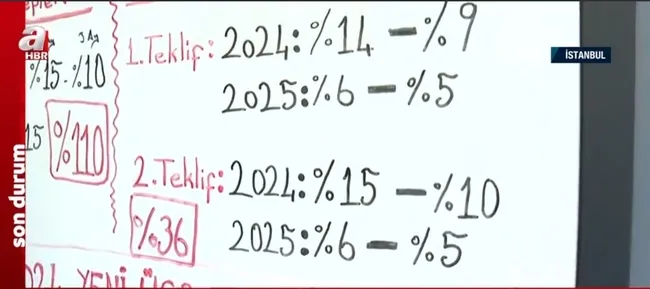 a
HBR
3 Ay
%15-%10
15
%110
1.Teklif: 2024:%14 - %9
2025:%6 - %5
2.Teklif: 2024:%15 - %10
%36
2025:%6 - %5
YENİ
İSTANBUL
son durum